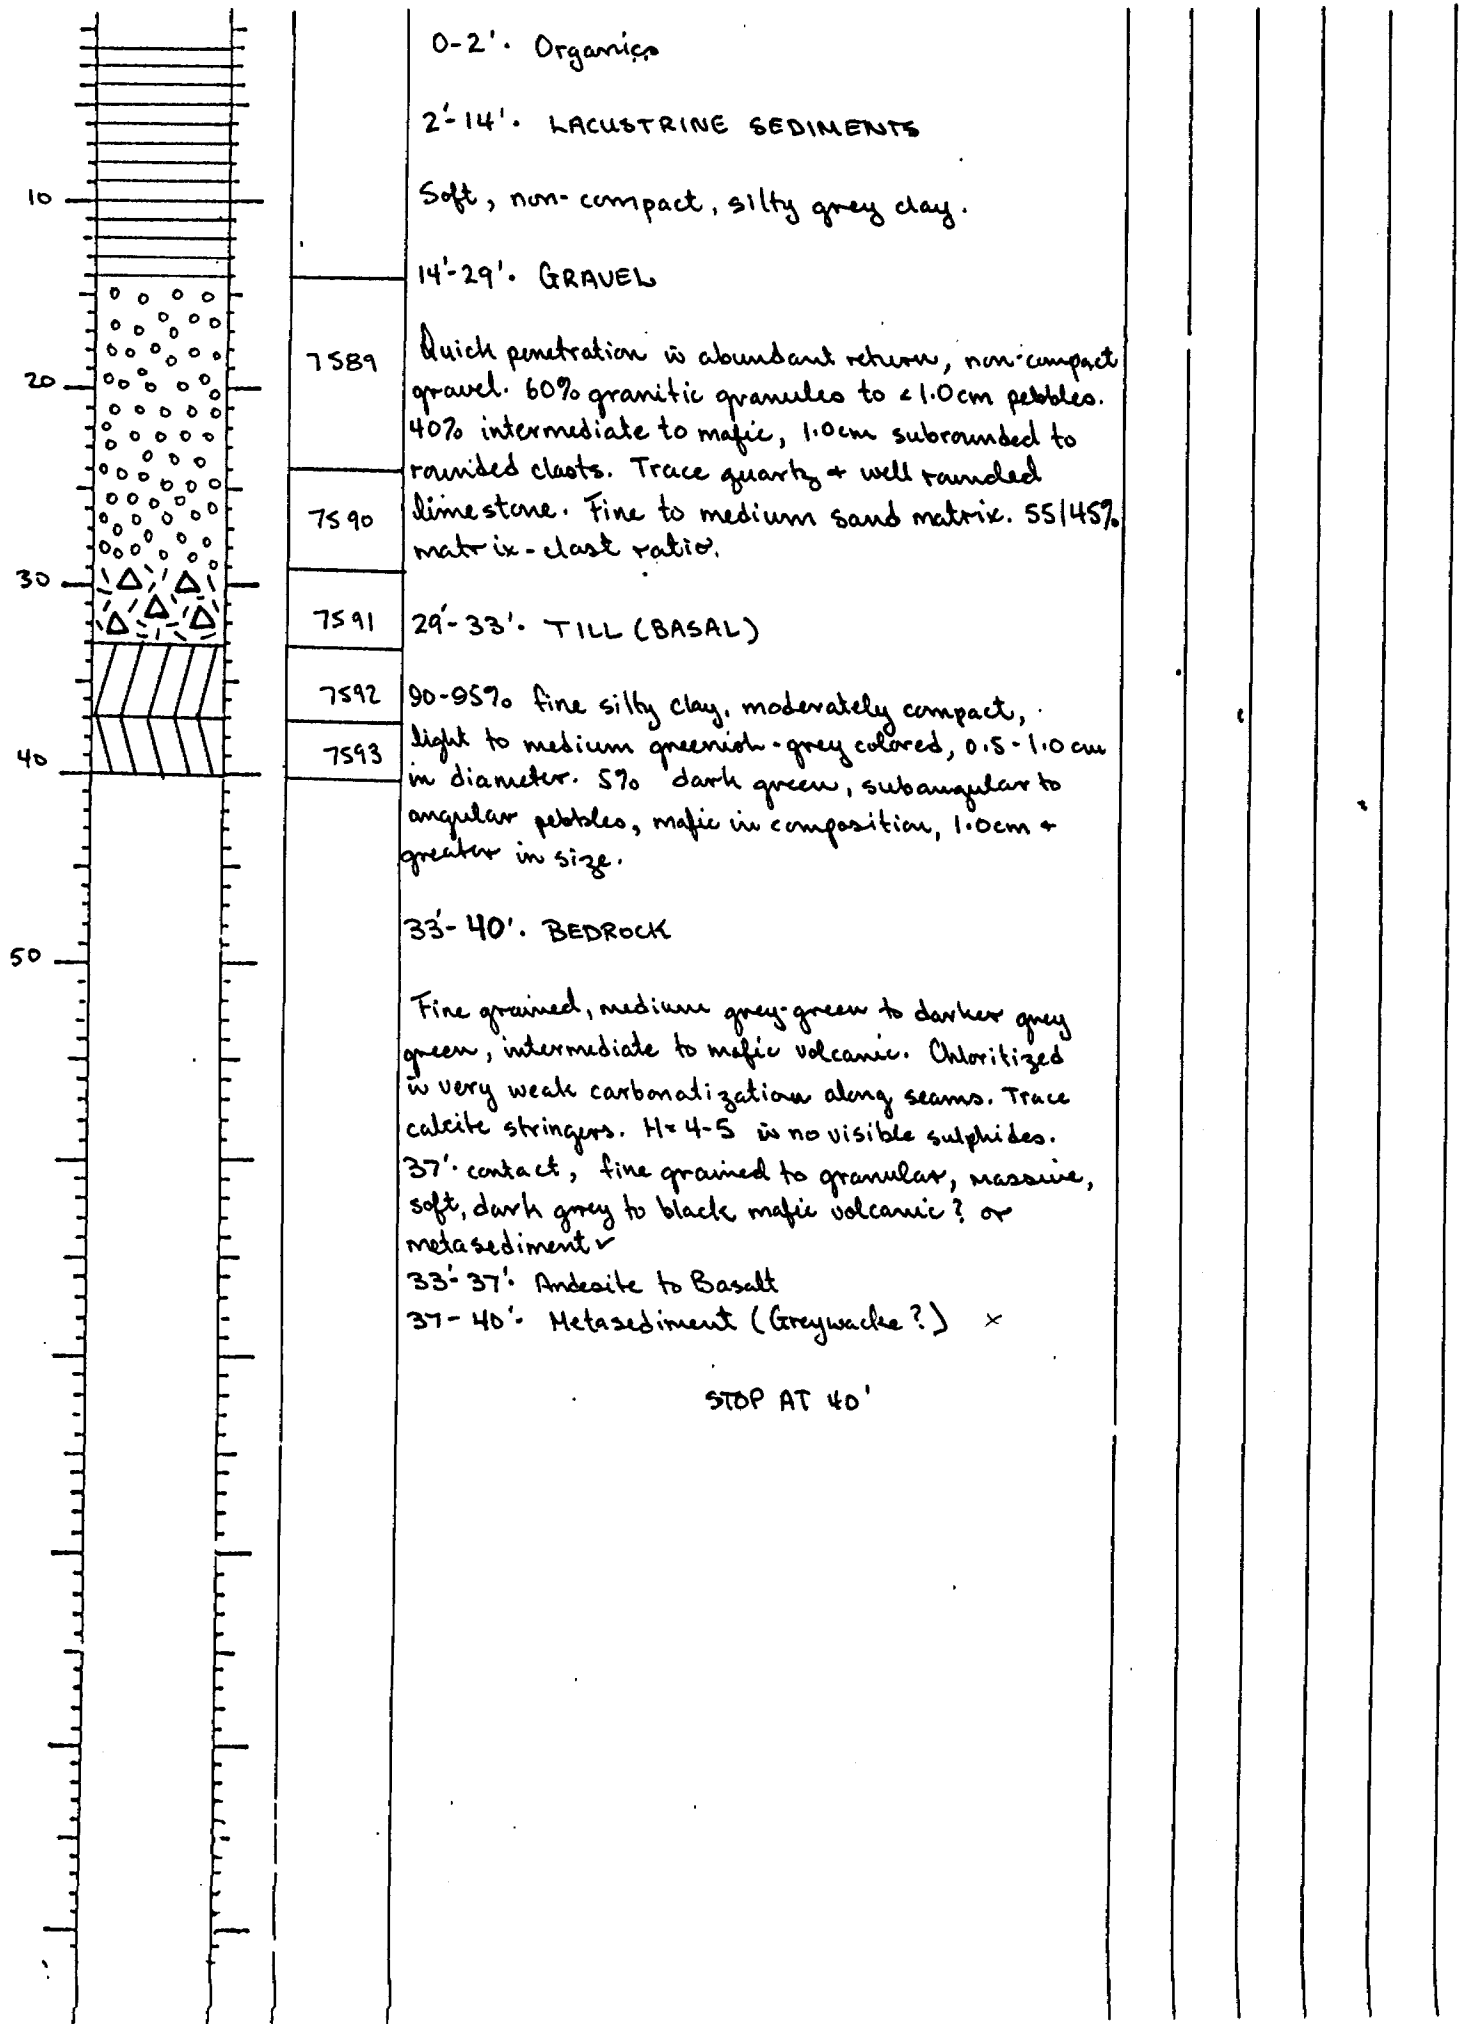 0-2'. Organics
2'-14'. LACUSTRINE SEDIMENTS
10
Soft, non-compact, silty grey clay.
14'-29'. GRAVEL
7589
Quick penetration w abundant return, non-compact
20
gravel. 60% granitic granules to <1.0cm pebbles.
40% intermediate to mafic, 1.0cm subrounded to
rounded clasts. Trace quartz + well rounded
7590
limestone. Fine to medium sand matrix. 55/45%
matrix-clast ratio.
30
7591
29'-33'. TILL (BASAL)
7592
90-95% fine silty clay, moderately compact,
40
7593
light to medium greenish-grey colored, 0.5-1.0cm
in diameter. 5% dark green, subangular to
angular pebbles, mafic in composition, 1.0cm +
greater in size.
33'-40'. BEDROCK
50
Fine grained, medium grey-green to darker grey
green, intermediate to mafic volcanic. Chloritized
w very weak carbonatization along seams. Trace
calcite stringers. H=4-5 w no visible sulphides.
37'. contact, fine grained to granular, massive,
soft, dark grey to black mafic volcanic? or
metasediment ✓
33'-37'. Andesite to Basalt
37-40'. Metasediment (Greywacke?) ×
STOP AT 40'